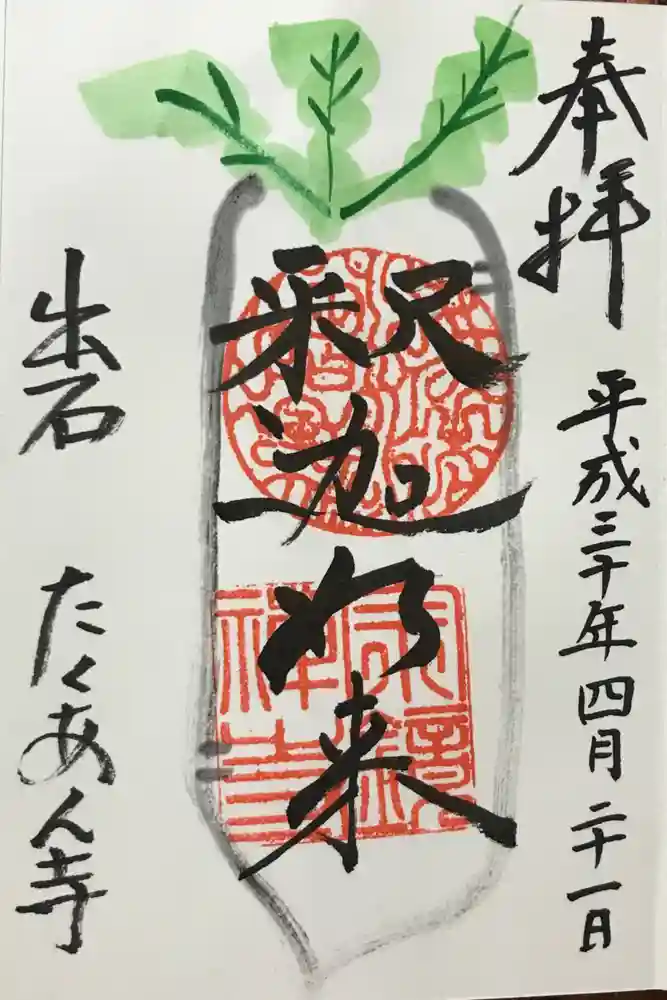 奉拝
平成三十年四月二十一日
釈迦如来
宗鏡禅寺
出石
たくあん寺